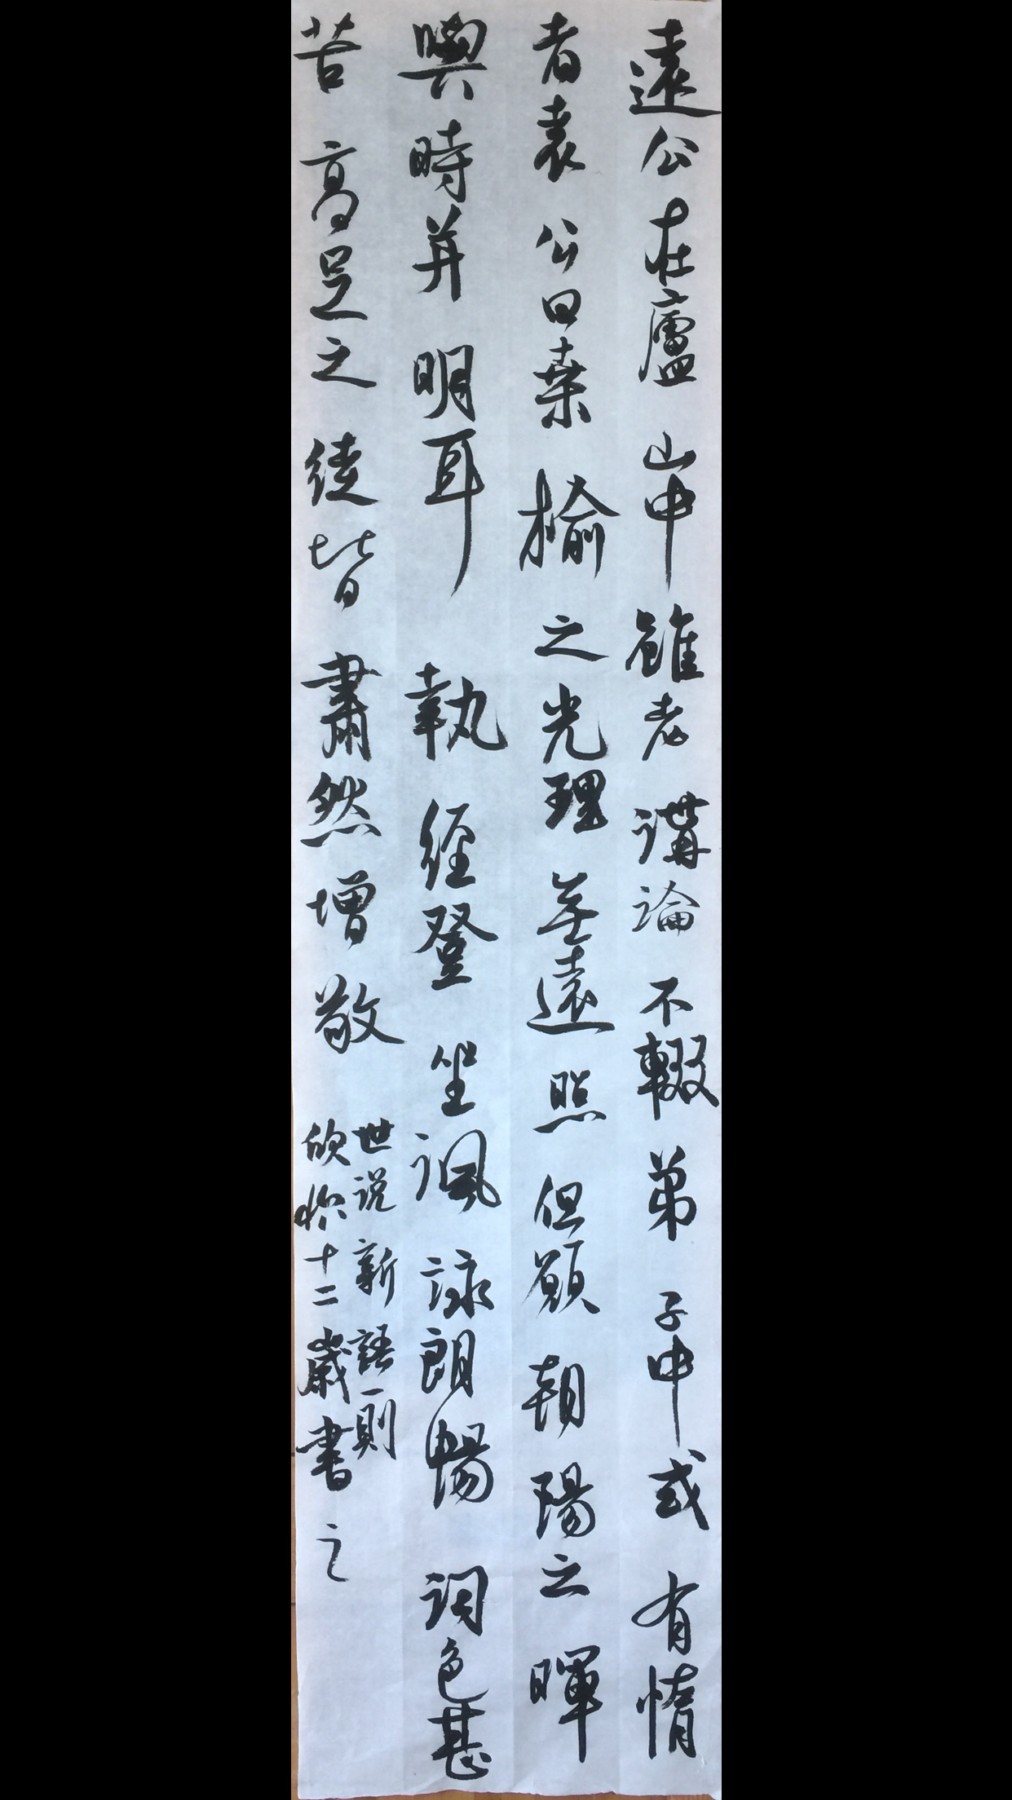 遠公在廬山中雖老講論不輟弟子中或有惰
者袁公曰桑榆之光理無遠照但願朝陽之暉
與時並明耳執經登坐諷詠朗暢詞色甚
苦高足之徒皆肅然增敬
世说新語一則
欣怡十二歲書之